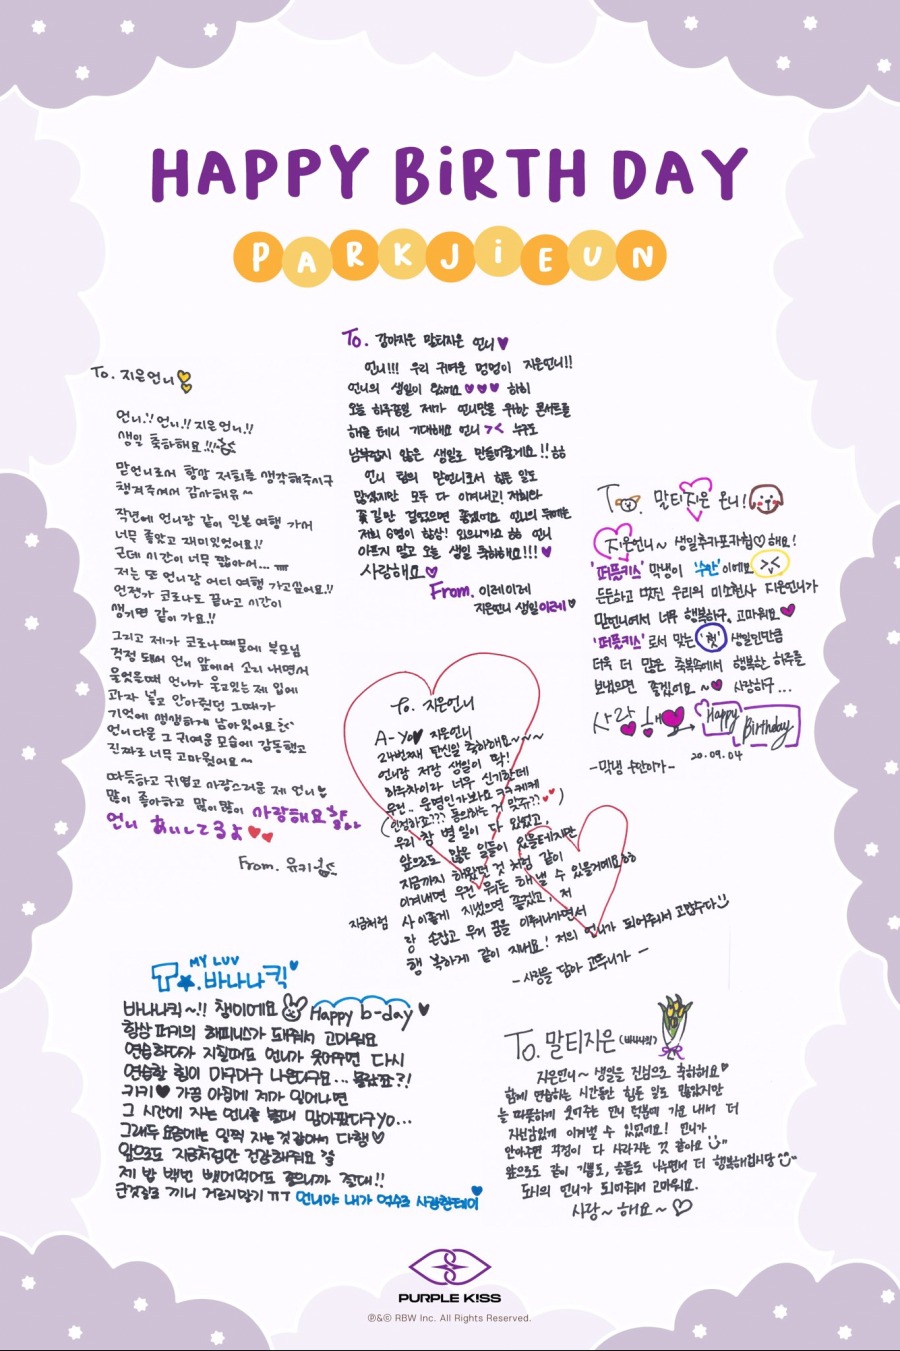 HAPPY BiRTH DAY
PARKJiEUN
To. 지은언니
언니!! 언니!! 지은 언니!!
생일 축하해요!!
맏언니로서 항상 저희를 생각해주시구
챙겨주셔서 감사해유 ~
작년에 언니랑 같이 일본 여행 가서
너무 좋았고 재미있었어요!!
근데 시간이 너무 짧아서...
저는 또 언니랑 어디 여행 가고싶어요!!
언젠가 코로나도 끝나고 시간이
생기면 같이 가요!!
그리고 제가 코로나때문에 부모님
걱정 돼서 언니 앞에서 소리 내면서
울었을때 언니가 울고있는 제 입에
과자 넣고 안아줬던 그때가
기억에 생생하게 남아있어요
언니다운 그 귀여운 모습에 감동했고
진짜로 너무 고마웠어요~
따뜻하고 귀엽고 사랑스러운 제 언니
많이 좋아하고 많이많이 사랑해요
언니 あいしてるよ
From. 유키
To. 강아지은 말티지은 언니
언니!!! 우리 귀여운 멍멍이 지은언니!!
언니의 생일이 왔어요 히히
오늘 하루종일 제가 언니만을 위한 콘서트를
해줄 테니 기대해요 언니 >< 누구도
남부럽지 않은 생일로 만들어줄게요!! ㅎㅎ
언니 팀의 맏언니로서 힘든 일도
많겠지만 모두 다 이겨내고! 저희랑
꽃길만 걸었으면 좋겠어요 언니의 뒤에는
저희 6명이 항상! 있으니까요 ㅎㅎ 언니
아프지 말고 오늘 생일 축하해요!!!
사랑해요
From. 이레이레
지은언니 생일이레
To. 말티지은 온니!
지은언니~ 생일추카포카링♡해요!
'퍼플키스' 막냉이 '수안'이에요 ><
든든하고 멋진 우리의 미소천사 지은언니가
맏언니여서 너무 행복하구, 고마워요
'퍼플키스'로서 맞는 '첫' 생일인만큼
더욱 더 많은 축복속에서 행복한 하루를
보냈으면 좋겠어요 ~ 사랑하구...
사랑해 → Happy Birthday
20.09.04
-막냉 수안이가-
To. 지은언니
A-Yo 지은언니
24번째 탄신일 축하해요~~~
언니랑 저랑 생일이 딱!
하루차이라 너무 신기한데
우린.. 운명인가봐요 ㅋㅋㅋㅋ
(인정하죠??? 동의하는 것 맞쥬??)
우리 참 별 일이 다 있었고,
앞으로도 많은 일들이 있을테지만
지금까지 해왔던 것 처럼 같이
이겨내면 우린 뭐든 해낼 수 있을거에요ㅎㅎ
지금처럼 사이좋게 지냈으면 좋겠고, 저
랑 손잡고 우리 꿈을 이뤄나가면서
행복하게 같이 지내요! 저의 언니가 되어줘서 고맙수다
- 사랑을 담아 고뚜니가 -
MY LUV
To.바나나킥
바나나킥~!! 챙이에요 Happy b-day
항상 퍼키의 해피니스가 돼줘서 고마워요
연습하다가 지칠때도 언니가 웃어주면 다시
연습할 힘이 마구마구 나온다구요... 몰랐죠?!
카키 가끔 아침에 제가 일어나면
그 시간에 자는 언니를 볼때 맘아팠다구yo...
그래두 요즘에는 일찍 자는것같아서 다행♡
앞으로도 지금처럼만 건강해줘요
제 밥 백번 뺏어먹어도 좋으니까 절대!!
군것질로 끼니 거르지말기 ㅠㅠ 언니야 내가 억수로 사랑한데이
To. 말티지은 (바나나킥)
지은언니~ 생일을 진심으로 축하해요
함께 연습하는 시간동안 힘든 일도 많았지만
늘 따뜻하게 웃어주는 언니 덕분에 기운 내서 더
자신감있게 이겨낼 수 있었어요! 언니가
안아주면 걱정이 다 사라지는 것 같아요
앞으로도 같이 기쁨도, 슬픔도 나누면서 더 행복해집시당
도시의 언니가 되어줘서 고마워요.
사랑~ 해요~♡
PURPLE K!SS
℗&© RBW Inc. All Rights Reserved.